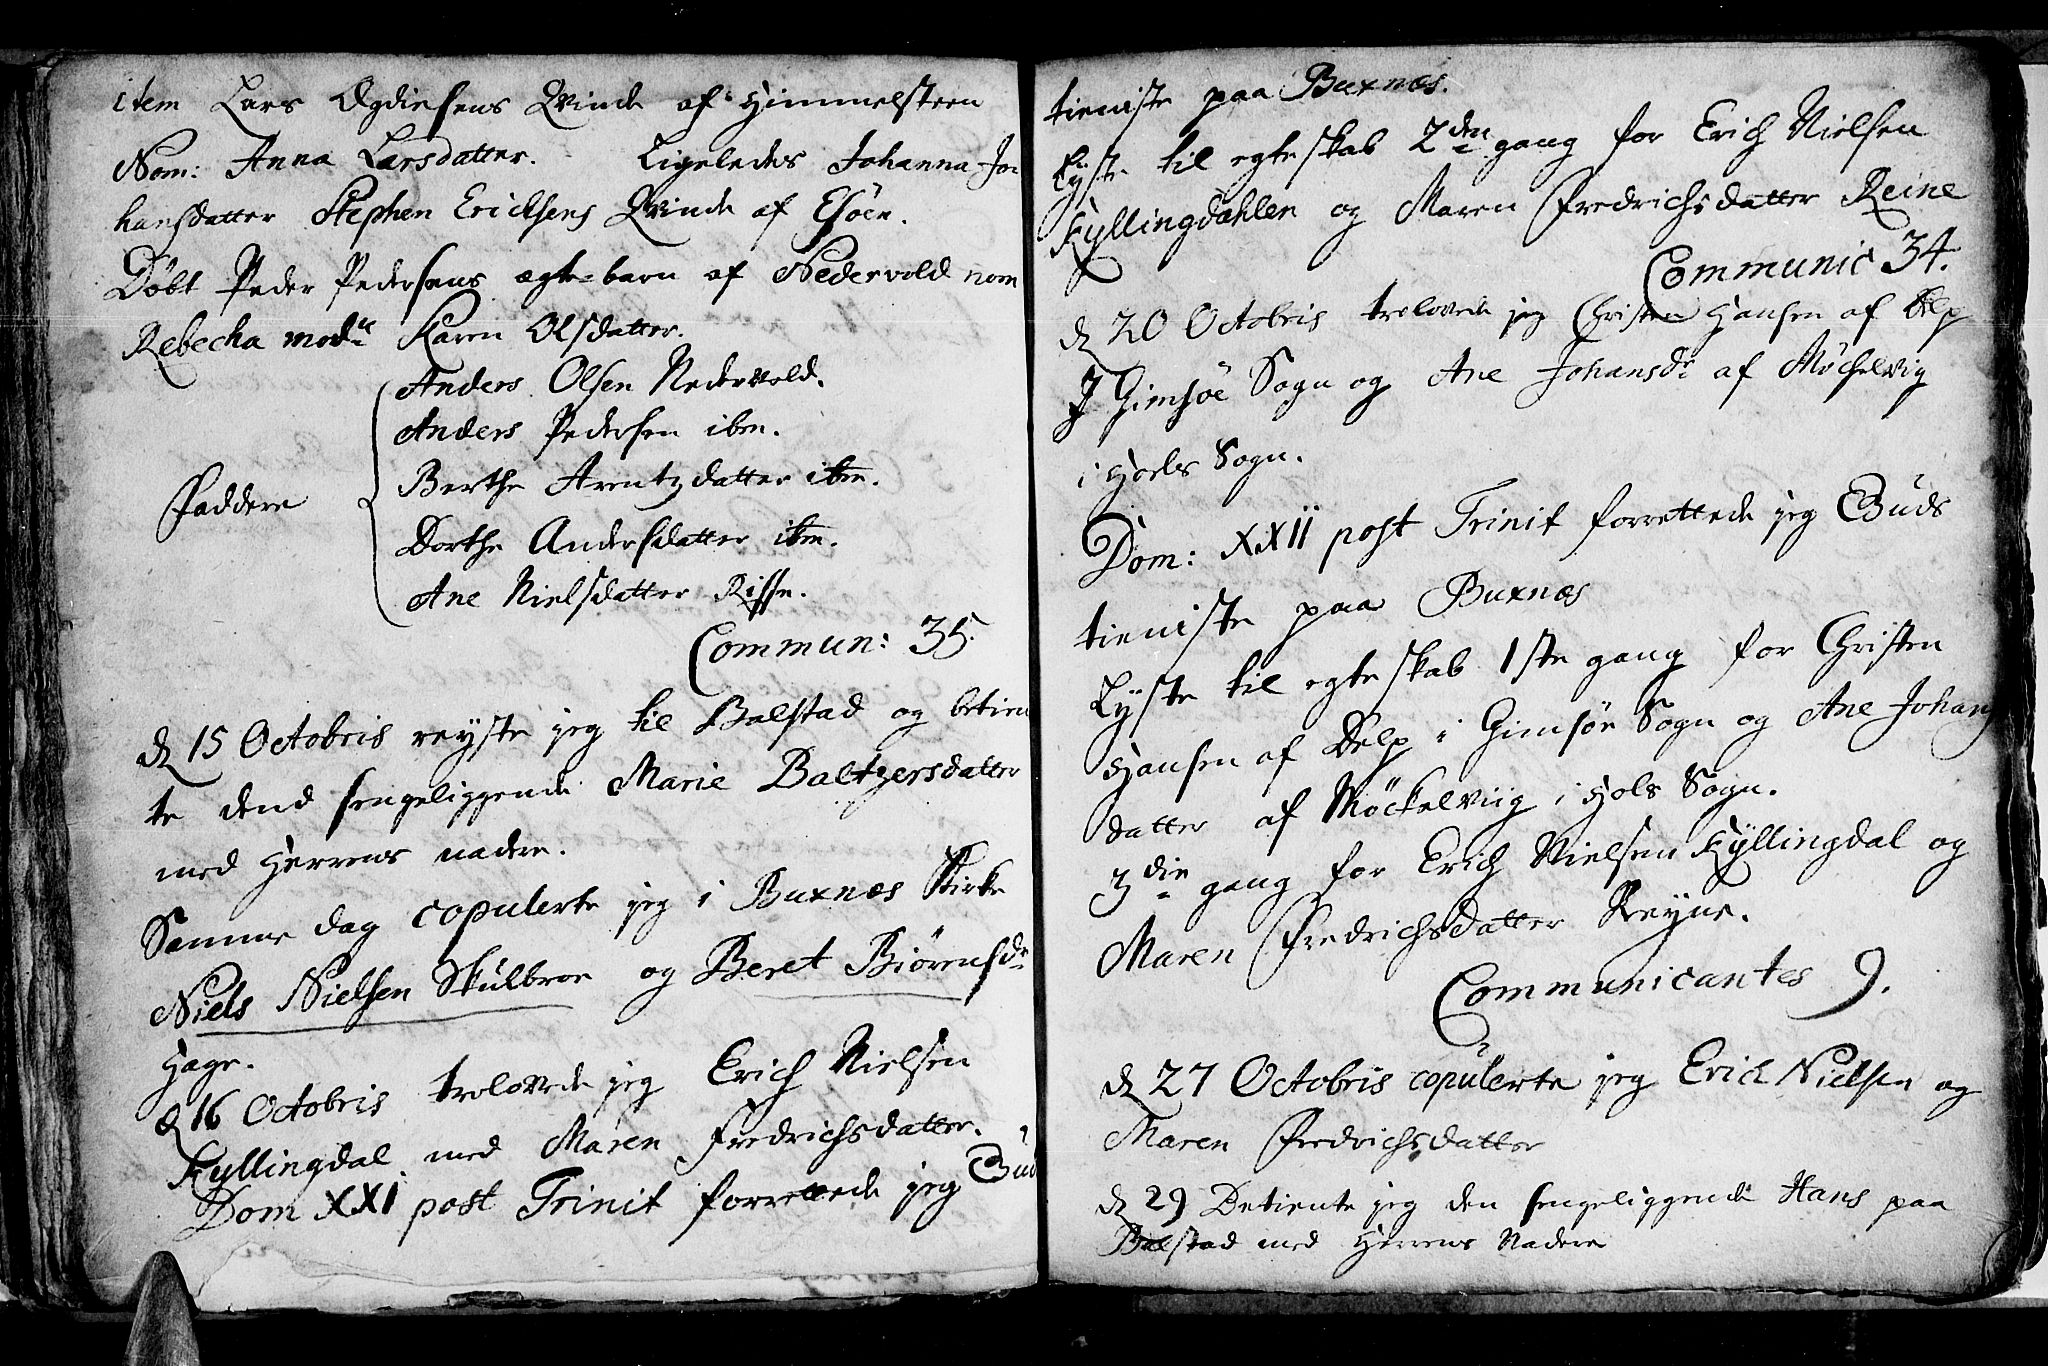 item Lars Ogdiesens Qvinde af Himmelsteen
Nom: Anna Larsdatter. Ligeledes Johanna Jo=
hansdatter Stephen Ericksens Qvinde af Esöen.
Döbt Peder Pedersens ægte=barn af Nedervold nom
Rebecha mod: Karen Olsdatter.
Anders Olsen Nedervold.
Anders Pedersen ibm.
Faddere
Berthe Arentzdatter ibm.
Dorthe Andersdatter ibm.
Ane Nielsdatter Risse.
Commun: 35.
d 15 Octobris reyste jeg til Balstad og betien
te dend sengeliggende Marie Baltzersdatter
med Herrens nadre.
Samme dag copulerte jeg i Buxnæs Kirke
Niels Nielsen Skulbroe og Beret Biörensdr
Hage.
d 16 Octobris trolovede jeg Erich Nielsen
Kyllingdal med Maren Fredrichsdatter.
Dom XXI post Trinit forrettede jeg Gud
tieniste paa Buxnæs.
Lyste til egteskab 2den gang for Erich Nielsen
Kyllingdahlen og Maren Fredrichsdatter Reine
Communic 34.
d 20 Octobris trolovede jeg Christen Hansen af Delp
J Gimsöe Sogn og Ane Johansdr af Möchelvig
i Hols Sogn.
Dom: XXII post Trinit forrettede jeg Guds
tieniste paa Buxnæs
Lyste til egteskab 1ste gang for Christen
Hansen af Delp i Gimsöe Sogn og Ane Johans
datter af Möckelviig i Hols Sogn.
3die gang for Erich Nielsen Kyllingdal og
Maren Fredrichsdatter Reyne.
Communicantes 9.
d 27 Octobris copulerte jeg Erich Nielsen og
Maren Fredrichsdatter
d 29 Betiente jeg den sengeliggende Hans paa
Balstad med Herrens Nadere